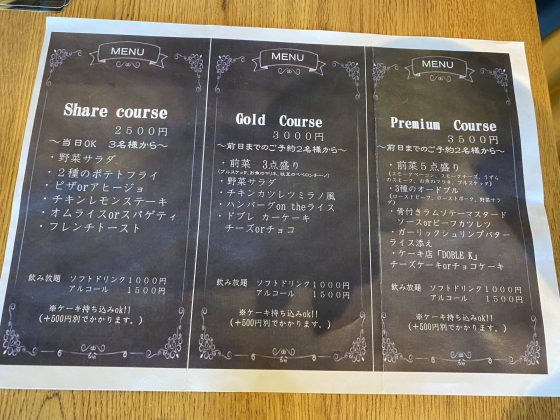 MENU
Share course
2500円
～当日OK 3名様から～
・野菜サラダ
・2種のポテトフライ
・ピザorアヒージョ
・チキンレモンステーキ
・オムライスorスパゲティ
・フレンチトースト
飲み放題 ソフトドリンク1000円
アルコール 1500円
※ケーキ持ち込みok!!
(+500円別でかかります。)
MENU
Gold Course
3000円
～前日までのご予約2名様から～
・前菜 3点盛り
・野菜サラダ
・チキンカツレツミラノ風
・ハンバーグon theライス
・ドブレ カーケーキ
チーズorチョコ
飲み放題 ソフトドリンク1000円
アルコール 1500円
※ケーキ持ち込みok!!
(+500円別でかかります。)
MENU
Premium Course
3500円
～前日までのご予約2名様から～
・前菜5点盛り
・3種のオードブル
(ローストビーフ、ローストポーク、野菜サラダ)
・骨付きラムソテーマスタード
ソースorビーフカツレツ
・ガーリックシュリンプバター
ライス添え
・ケーキ店「DOBLE K」
チーズケーキorチョコケーキ
飲み放題 ソフトドリンク1000円
アルコール 1500円
※ケーキ持ち込みok!!
(+500円別でかかります。)